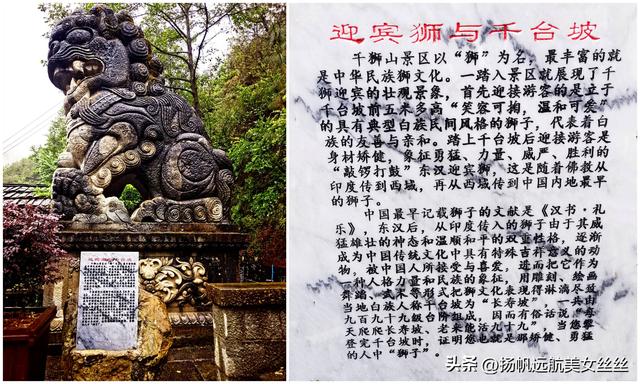 迎宾狮与千台坡
千狮山景区以“狮”为名，最丰富的就
是中华民族狮文化。一踏入景区就展现了千
狮迎宾的壮观景象，首先迎接游客的是立于
千台坡前五米多高“笑容可掬，温和可爱”
的具有典型白族民间风格的狮子，代表着白
族的友善与亲和。踏上千台坡后迎接游客是
身材矫健，象征勇猛、力量、威严、胜利的
“敲锣打鼓”东汉迎宾狮，这是随着佛教从
印度传到西域，再从西域传到中国内地最早
的狮子。
中国最早记载狮子的文献是《汉书·礼
乐》，东汉后，从印度传入的狮子由于其威
猛雄壮的神态和温顺和平的双重性格，逐渐
成为中国传统文化中具有特殊吉祥意义的动
物，被中国人所接受与喜爱，进而把它作为
一种人格力量和民族的象征，用雕刻、绘画
舞蹈、武术等形式把狮文化表现得淋漓尽致
当地白族人称千台坡为“长寿坡”，一共由
九百九十九级台阶组成，因而有俗话说“每
天爬爬长寿坡、老来能活九十九”，当您攀
登完千台坡时，证明您也就是那矫健、勇猛
的人中“狮子”。
头条 @扬帆远航美女丝丝